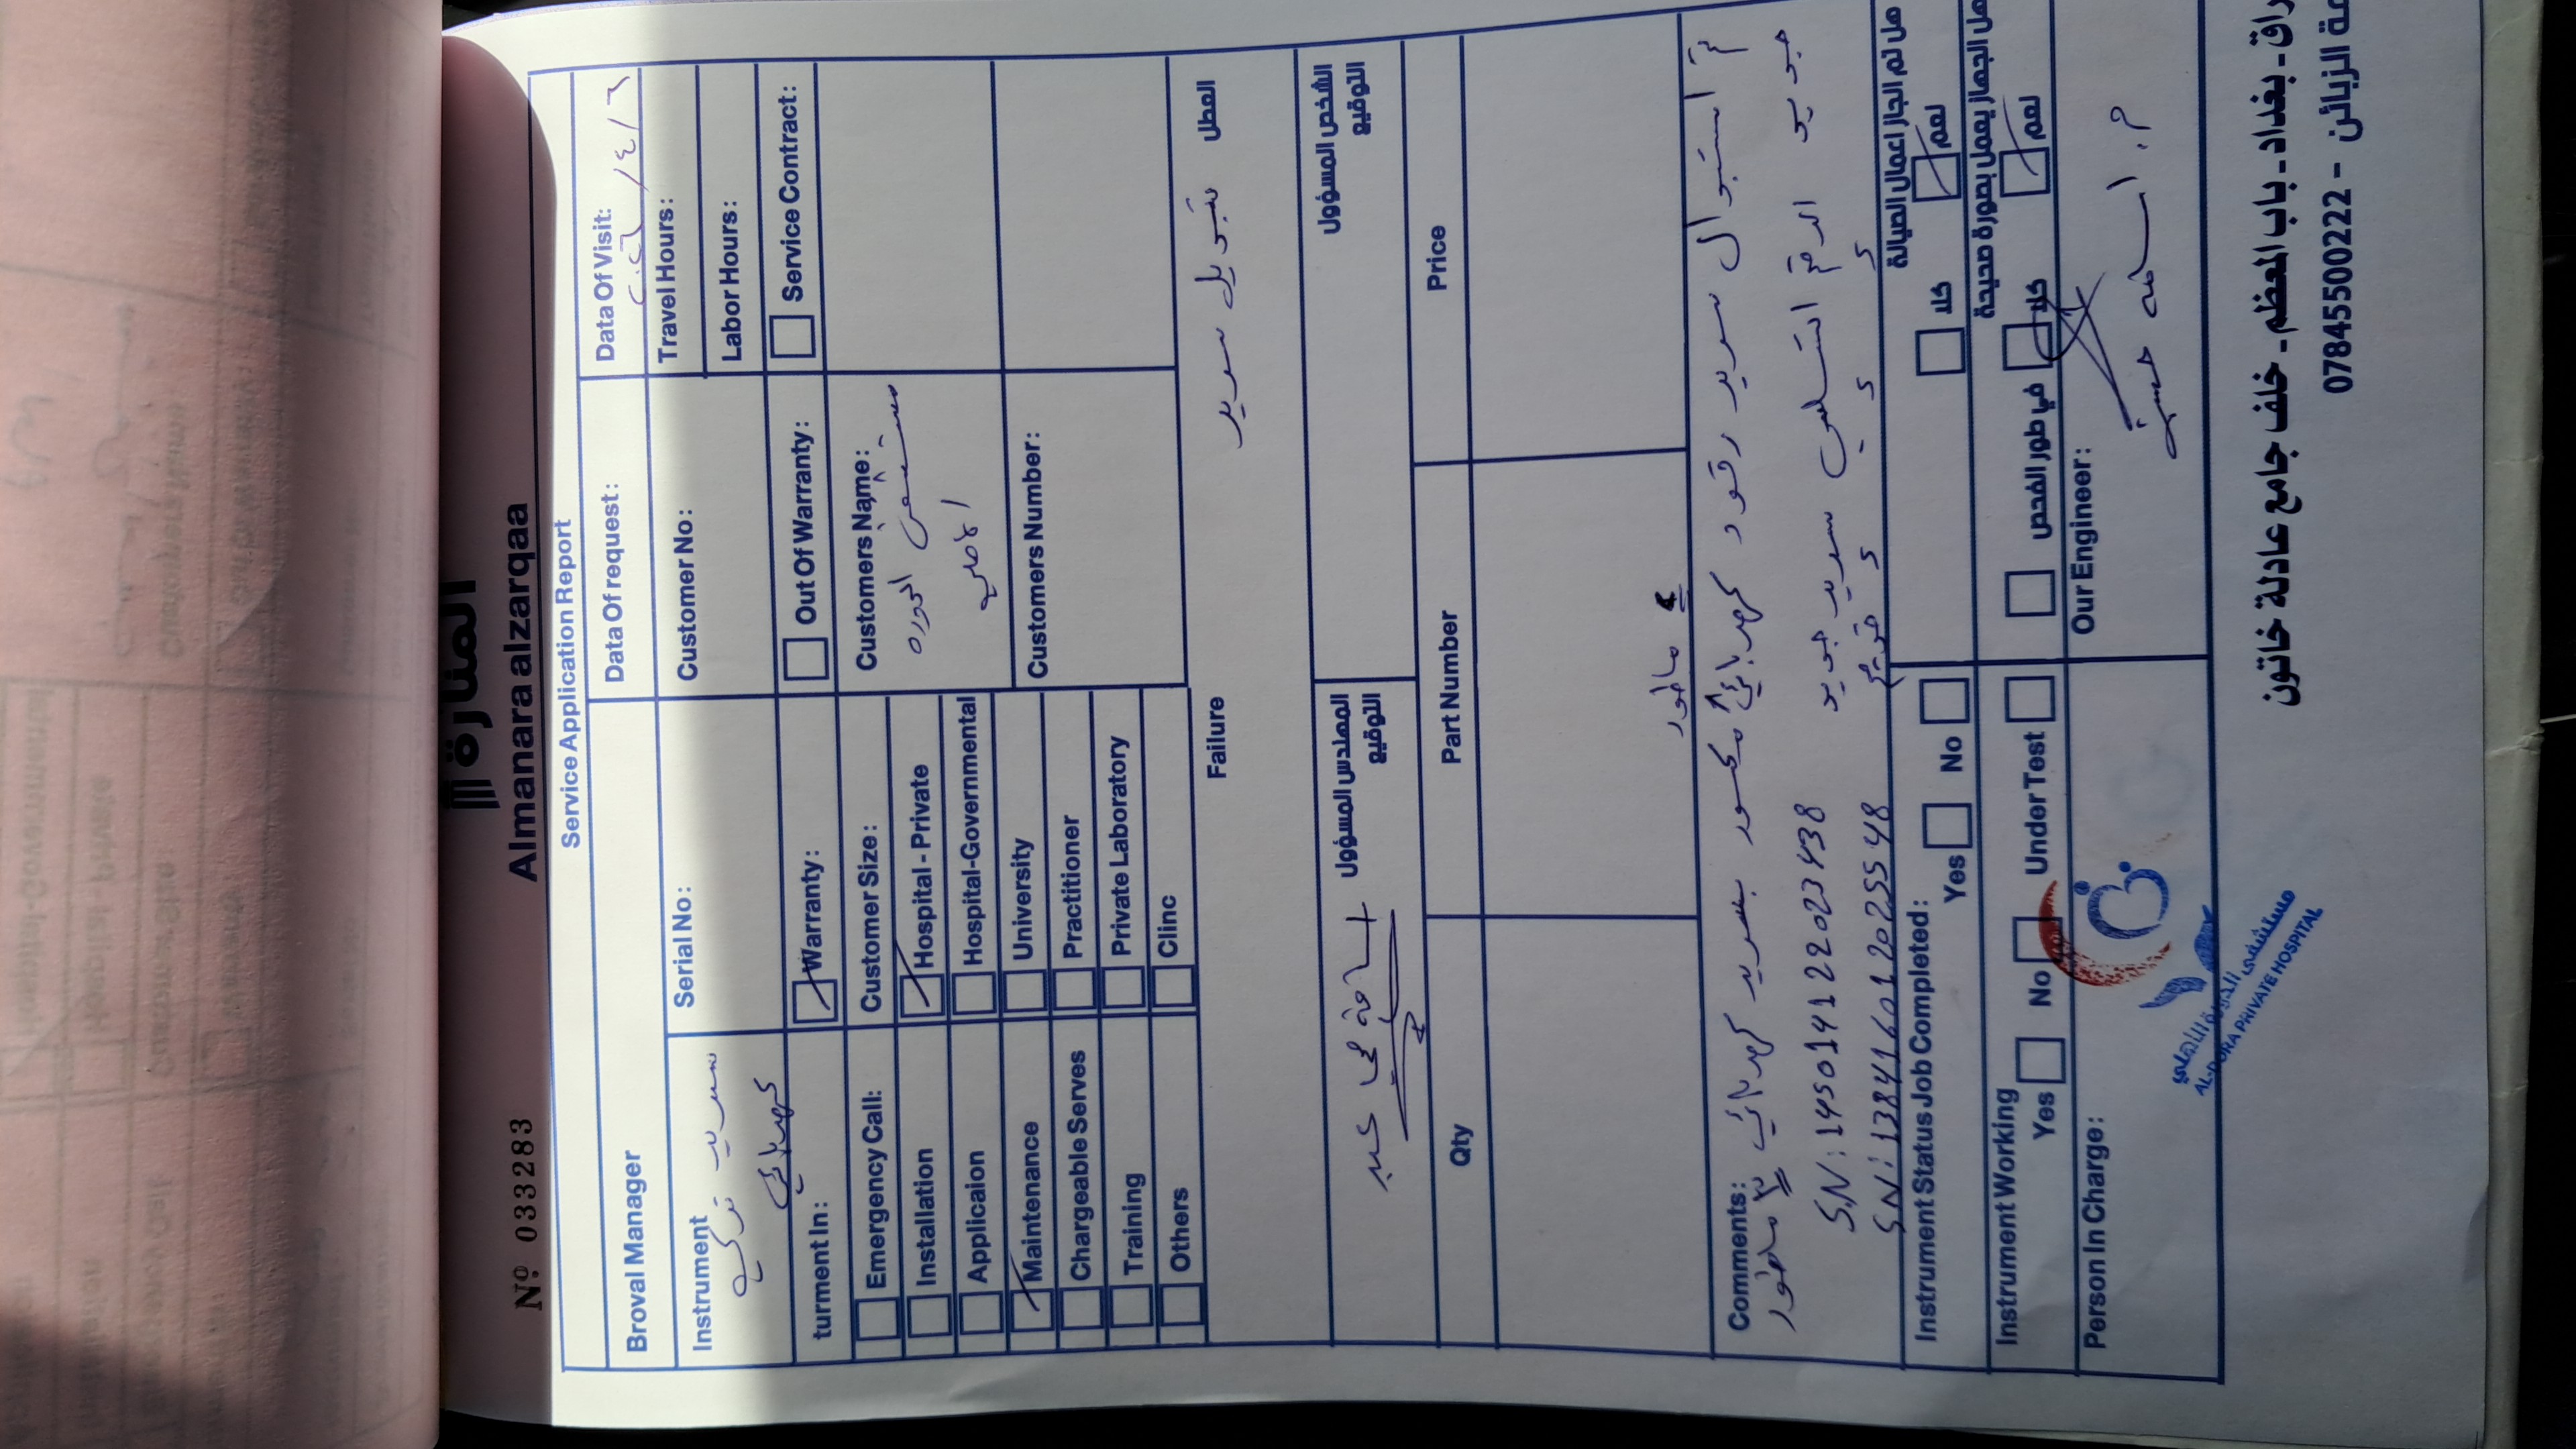 المنارة
Almanara alzarqaa
Nº 033283
Service Application Report
Broval Manager
Data Of request:
Data Of Visit:
٢٠٢٦/٤/٢
Instrument
سرير تركي
كهربائي
Serial No:
Customer No:
Travel Hours:
Labor Hours:
turment In:
Warranty:
Out Of Warranty:
Service Contract:
Emergency Call:
Installation
Applicaion
Maintenance
Chargeable Serves
Training
Others
Customer Size:
Hospital - Private
Hospital-Governmental
University
Practitioner
Private Laboratory
Clinc
Customers Name:
مستشفى الدوره
الاهلي
Customers Number:
Failure
العطل
تبديل سرير
المهندس المسؤول
التوقيع
الشخص المسؤول
التوقيع
Qty
Part Number
Price
Comments:
تم استبدال سرير رقود كهربائي ٢ ماطور مكسور بسرير كهربائي ٣ ماطور
جديد الرقم التسلسلي سرير جديد S.N: 145014122023438
قديم S.N: 138416012025548
Instrument Status Job Completed:
Yes
No
هل تم انجاز اعمال الصيانة
كلا
نعم
Instrument Working
Yes
No
Under Test
هل الجهاز يعمل بصورة صحيحة
في طور الفحص
كلا
نعم
Person In Charge:
مستشفى الدورة الأهلي
AL-DORA PRIVATE HOSPITAL
Our Engineer:
راق - بغداد - باب المعظم - خلف جامع عادلة خاتون
مة الزبائن - 07845500222